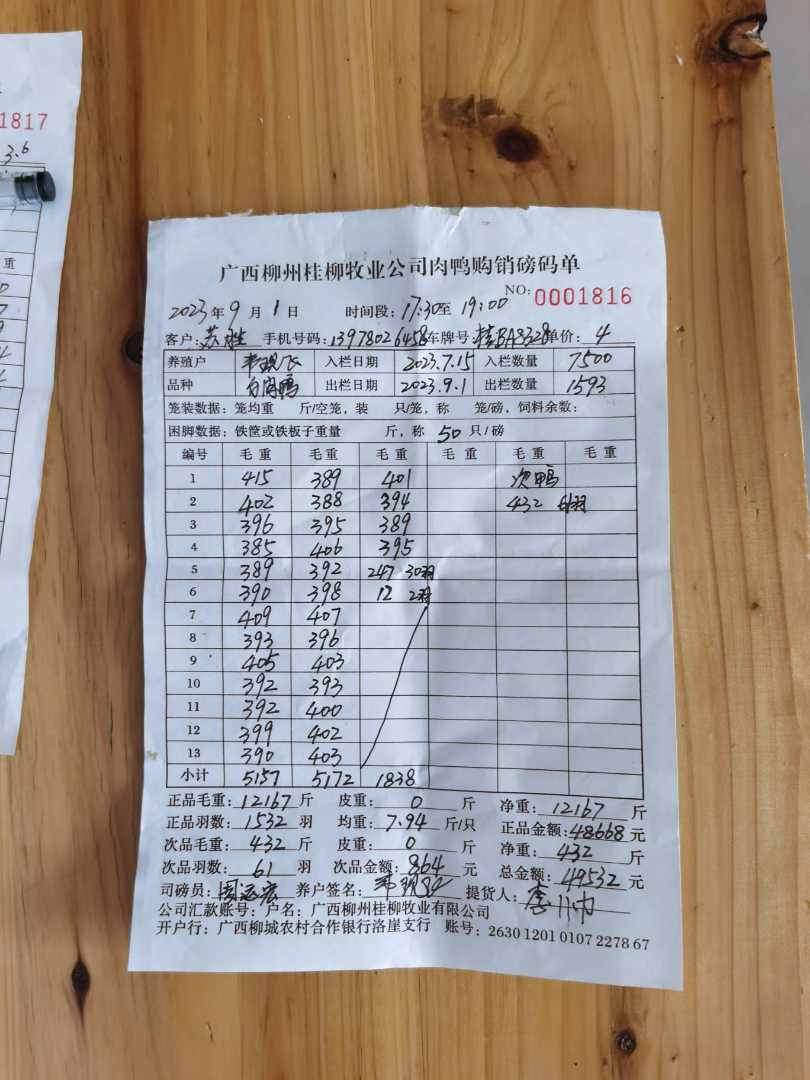 1817
3.6
重
广西柳州桂柳牧业公司肉鸭购销磅码单
NO: 0001816
2023年9月1日 时间段: 17:30至19:00
客户: 苏胜 手机号码: 13978026458 车牌号: 桂BA8328 单价: 4
养殖户 入栏日期 2023.7.15 入栏数量 7500
品种 白肉鸭 出栏日期 2023.9.1 出栏数量 1593
笼装数据: 笼均重 斤/空笼, 装 只/笼, 称 笼/磅, 饲料余数:
困脚数据: 铁筐或铁板子重量 斤, 称 50 只/磅
编号 毛重 毛重 毛重 毛重 毛重 毛重
1 415 389 401 次鸭
2 402 388 394 432 61羽
3 396 395 389
4 385 406 395
5 389 392 247 30羽
6 390 398 12 2羽
7 409 407
8 393 396
9 405 403
10 392 393
11 392 400
12 399 402
13 390 403
小计 5157 5172 1838
正品毛重: 12167斤 皮重: 0 斤 净重: 12167 斤
正品羽数: 1532 羽 均重: 7.94 斤/只 正品金额: 48668元
次品毛重: 432 斤 皮重: 0 斤 净重: 432 斤
次品羽数: 61 羽 次品金额: 864 元 总金额: 49532元
司磅员: 养户签名: 提货人:
公司汇款账号: 户名: 广西柳州桂柳牧业有限公司
开户行: 广西柳城农村合作银行洛崖支行 账号: 2630 1201 0107 2278 67